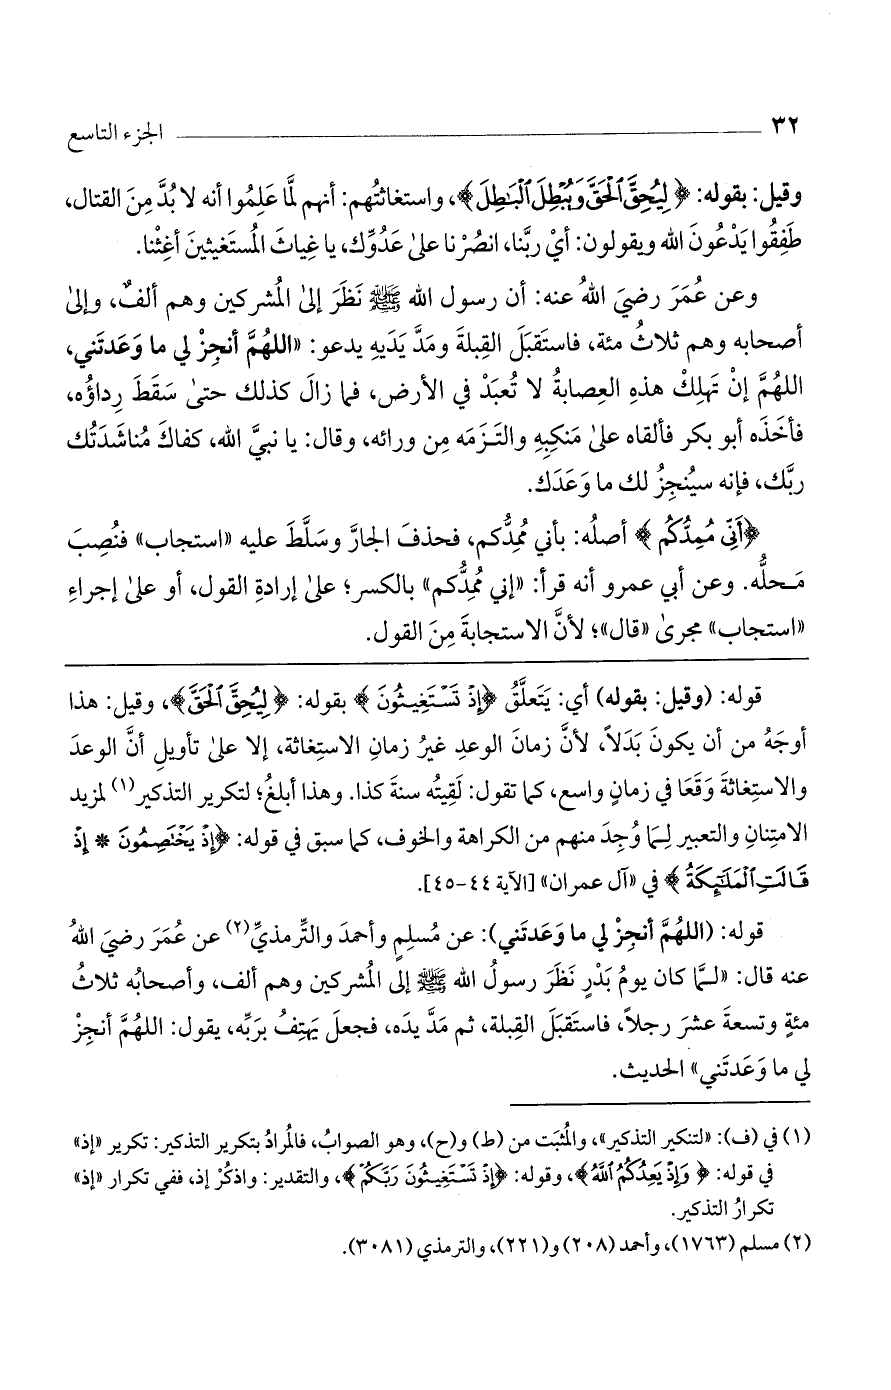 ٣٢ الجزء التاسع
وقيل: بقوله: ﴿لِيُحِقَّ ٱلْحَقَّ وَيُبْطِلَ ٱلْبَٰطِلَ﴾، واستغاثتُهم: أنهم لمَّا عَلِمُوا أنه لا بُدَّ مِنَ القتال،
طَفِقُوا يَدْعُونَ الله ويقولون: أيْ ربَّنا، انصُرْنا علىٰ عَدُوِّك، يا غِياثَ المُستَغيثينَ أغِثْنا.
وعن عُمَرَ رضيَ اللهُ عنه: أن رسول الله ﷺ نَظَرَ إلىٰ المُشركين وهم ألفٌ، وإلىٰ
أصحابه وهم ثلاثُ مئة، فاستَقبَلَ القِبلةَ ومَدَّ يَدَيهِ يدعو: «اللهُمَّ أنجِزْ لي ما وَعَدتَني،
اللهُمَّ إنْ تَهلِكْ هذهِ العِصابةُ لا تُعبَدْ في الأرض، فما زالَ كذلك حتىٰ سَقَطَ رِداؤُه،
فأخَذَه أبو بكر فألقاه علىٰ مَنكِبِهِ والتَـزَمَه مِن ورائه، وقال: يا نبيَّ الله، كفاكَ مُناشَدَتُك
ربَّك، فإنه سيُنجِزُ لك ما وَعَدَك.
﴿أَنِّي مُمِدُّكُم﴾ أصلُه: بأني مُمِدُّكم، فحذفَ الجارَّ وسَلَّطَ عليه «استجاب» فنُصِبَ
مَـحلُّه. وعن أبي عمرو أنه قرأ: «إني مُمِدُّكم» بالكسر؛ علىٰ إرادةِ القول، أو علىٰ إجراءِ
«استجاب» مجرىٰ «قال»؛ لأنَّ الاستجابةَ مِنَ القول.
قوله: (وقيل: بقوله) أي: يَتَعلَّقُ ﴿إِذْ تَسْتَغِيثُونَ﴾ بقوله: ﴿لِيُحِقَّ ٱلْحَقَّ﴾، وقيل: هذا
أوجَهُ من أن يكونَ بَدَلاً، لأنَّ زمانَ الوعدِ غيرُ زمانِ الاستِغاثة، إلا علىٰ تأويلِ أنَّ الوعدَ
والاستِغاثةَ وَقَعَا في زمانٍ واسع، كما تقول: لَقِيتُه سنةَ كذا. وهذا أبلغُ؛ لتكرير التذكير(١) لمزيد
الامتِنانِ والتعبير لِـمَا وُجِدَ منهم من الكراهة والخوف، كما سبق في قوله: ﴿إِذْ يَخْتَصِمُونَ * إِذْ
قَالَتِ ٱلْمَلَٰٓئِكَةُ﴾ في «آل عمران» [الآية ٤٤-٤٥].
قوله: (اللهُمَّ أنجِزْ لي ما وَعَدتَني): عن مُسلِمٍ وأحمدَ والتِّرمذيِّ(٢) عن عُمَرَ رضيَ اللهُ
عنه قال: «لـمَّا كان يومُ بَدْرٍ نَظَرَ رسولُ الله ﷺ إلى المُشركين وهم ألف، وأصحابُه ثلاثُ
مئةٍ وتسعةَ عشرَ رجلاً، فاستَقبَلَ القِبلة، ثم مَدَّ يدَه، فجعلَ يَهتِفُ برَبِّه، يقول: اللهُمَّ أنجِزْ
لي ما وَعَدتَني» الحديث.
(١) في (ف): «لتنكير التذكير»، والمُثبَت من (ط) و(ح)، وهو الصوابُ، فالمُرادُ بتكرير التذكير: تكرير «إذ»
في قوله: ﴿وَإِذْ يَعِدُكُمُ ٱللَّهُ﴾، وقوله: ﴿إِذْ تَسْتَغِيثُونَ رَبَّكُمْ﴾، والتقدير: واذكُرْ إذ، ففي تكرار «إذ»
تكرارُ التذكير.
(٢) مسلم (١٧٦٣)، وأحمد (٢٠٨) و(٢٢١)، والترمذي (٣٠٨١).